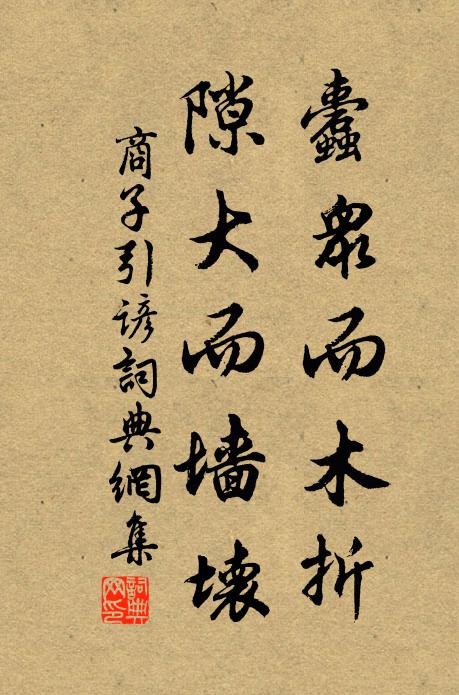 蠹衆而木折
隙大而墙壞
商子引諺詞典網集
詞典网印